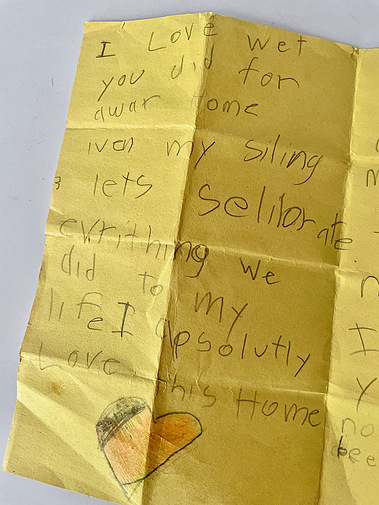 I Love wet
you did for
awar home
iven my siling
lets selibrate
evrithing we
did to my
life I apsolutly
Love this Home
I
y
no
bee